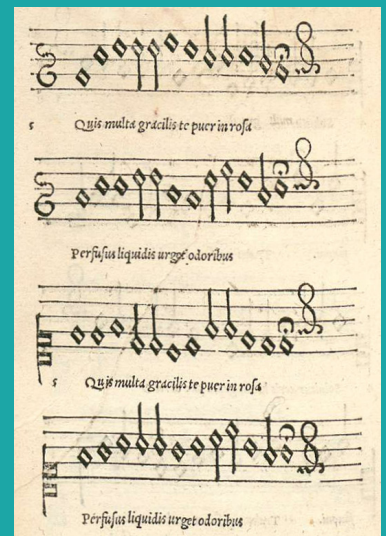 s Quis multa gracilis te puer in rosa
Perfusus liquidis urget odoribus
s Quis multa gracilis te puer in rosa
Perfusus liquidis urget odoribus